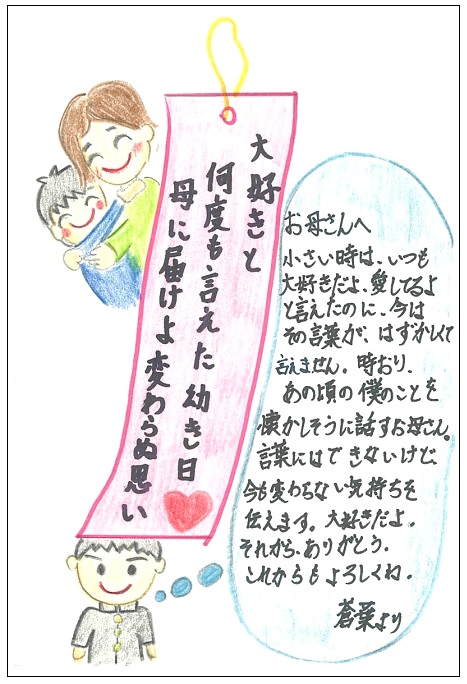 大好きと
何度も言えた幼き日
母に届けよ変わらぬ思い
お母さんへ
小さい時は、いつも
大好きだよ、愛してるよ
と言えたのに、今は
その言葉が、はずかしくて
言えません。時おり、
あの頃の僕のことを
懐かしそうに話すお母さん。
言葉にはできないけど、
今も変わらない気持ちを
伝えます。大好きだよ。
それから、ありがとう。
これからもよろしくね。
蒼葉より